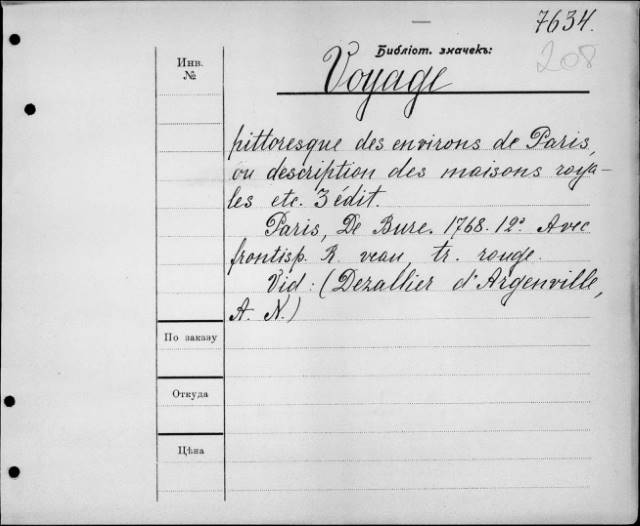 7634.
208
Библіот. значекъ:
Инв.
№
Voyage
pittoresque des environs de Paris,
ou description des maisons roya-
les etc. 3 édit.
Paris, De Bure. 1768. 12º. Avec
frontisp. R. veau, tr. rouge.
Vid: (Dezallier d'Argenville,
A. N.)
По заказу
Откуда
Цѣна